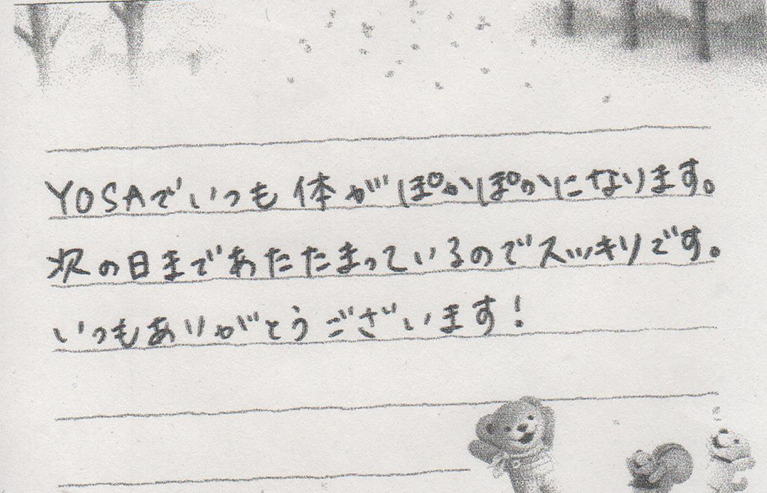 YOSAでいつも体がぽかぽかになります。
次の日まであたたまっているのでスッキリです。
いつもありがとうございます!